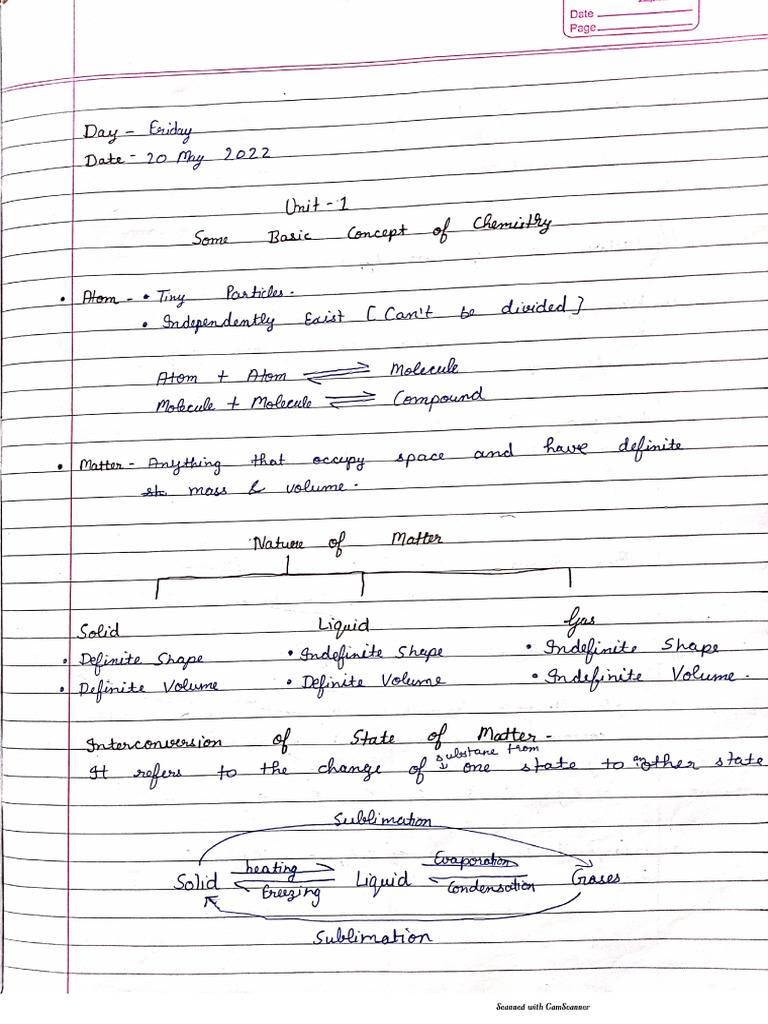 Date
Page
Day - Friday
Date - 20 May 2022
Unit - 1
Some Basic Concept of Chemistry
• Atom - • Tiny Particles.
• Independently Exist [Can't be divided]
Atom + Atom ⇌ Molecule
Molecule + Molecule ⇌ Compound
• Matter - Anything that occupy space and have definite
mass & volume.
Nature of Matter
Solid Liquid Gas
• Definite Shape • Indefinite Shape • Indefinite Shape
• Definite Volume • Definite Volume • Indefinite Volume.
Interconversion of State of Matter -
It refers to the change of substane from one state to another state
Sublimation
Solid heating Liquid Evaporation Gases
freezing Condensation
Sublimation
Scanned with CamScanner